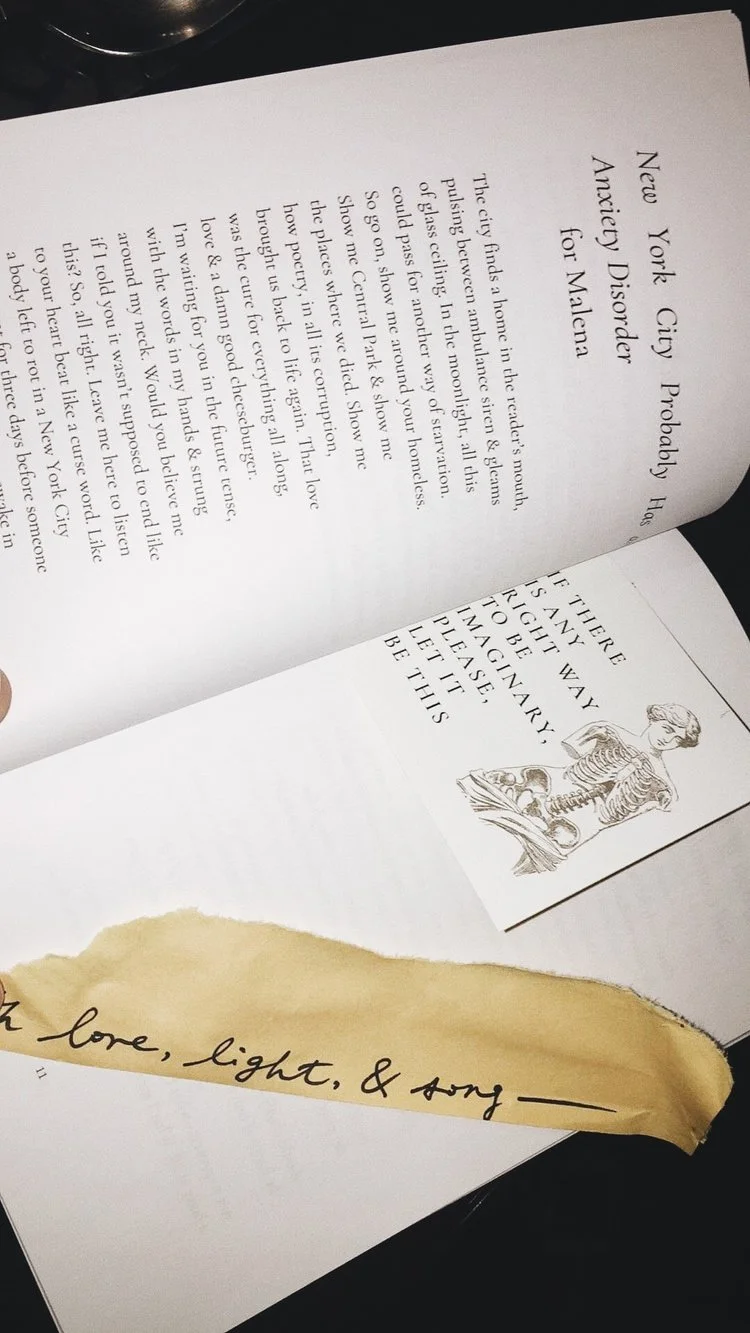 New York City Probably Has
Anxiety Disorder
for Malena
The city finds a home in the reader's mouth,
pulsing between ambulance siren & gleams
of glass ceiling. In the moonlight, all this
could pass for another way of starvation.
So go on, show me around your homeless.
Show me Central Park & show me
the places where we died. Show me
how poetry, in all its corruption,
brought us back to life again. That love
was the cure for everything all along,
love & a damn good cheeseburger.
I'm waiting for you in the future tense,
with the words in my hands & strung
around my neck. Would you believe me
if I told you it wasn't supposed to end like
this? So, all right. Leave me here to listen
to your heart beat like a curse word. Like
a body left to rot in a New York City
for three days before someone
wake in
IF THERE
IS ANY
RIGHT WAY
TO BE
IMAGINARY,
PLEASE,
LET IT
BE THIS
love, light, & song—
11